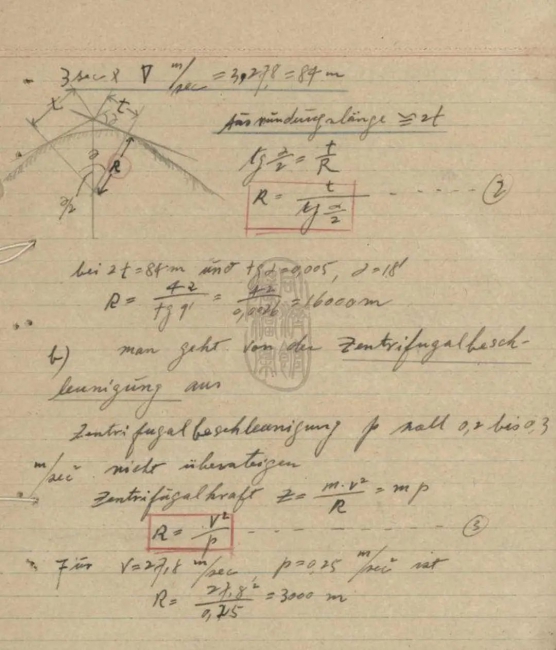 3 sec x V m/sec = 3,27,8 = 84 m
t t
α/2
α R
α/2
Ausrundungslänge ≅ 2t
tg α/2 = t/R
R = t / tg α/2 ----- (2)
bei 2t = 84 m und tgα = 0,005, α = 18'
R = 42 / tg 9' = 42 / 0,0026 = 16000 m
b) man geht von der Zentrifugalbesch-
leunigung aus
Zentrifugalbeschleunigung p soll 0,2 bis 0,3
m/sec² nicht übersteigen
Zentrifugalkraft Z = m·v² / R = mp
R = v² / p ----- (3)
Für V = 27,8 m/sec p = 0,25 m/sec² ist
R = 27,8² / 0,25 = 3000 m